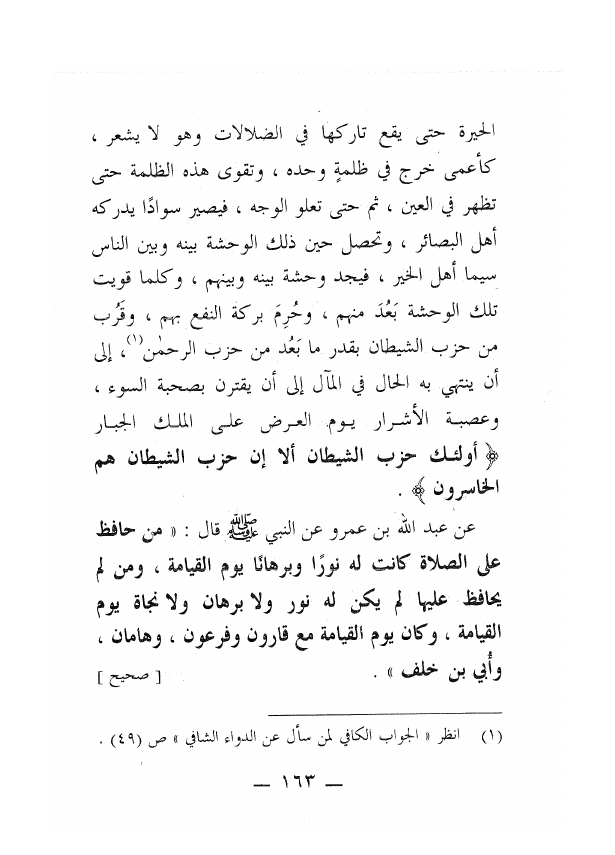 الحيرة حتى يقع تاركها في الضلالات وهو لا يشعر ،
كأعمى خرج في ظلمةٍ وحده ، وتقوى هذه الظلمة حتى
تظهر في العين ، ثم حتى تعلو الوجه ، فيصير سوادًا يدركه
أهل البصائر ، وتحصل حين ذلك الوحشة بينه وبين الناس
سيما أهل الخير ، فيجد وحشة بينه وبينهم ، وكلما قويت
تلك الوحشة بَعُدَ منهم ، وحُرِمَ بركة النفع بهم ، وقَرُب
من حزب الشيطان بقدر ما بَعُد من حزب الرحمٰن(١)، إلى
أن ينتهي به الحال في المآل إلى أن يقترن بصحبة السوء ،
وعصبة الأشرار يوم العرض على الملك الجبار
﴿ أولئك حزب الشيطان ألا إن حزب الشيطان هم
الخاسرون ﴾ .
عن عبد الله بن عمرو عن النبي ﷺ قال : « من حافظ
على الصلاة كانت له نورًا وبرهانًا يوم القيامة ، ومن لم
يحافظ عليها لم يكن له نور ولا برهان ولا نجاة يوم
القيامة ، وكان يوم القيامة مع قارون وفرعون ، وهامان ،
وأُبي بن خلف » . [ صحيح ]
(١) انظر « الجواب الكافي لمن سأل عن الدواء الشافي » ص (٤٩) .
— ١٦٣ —